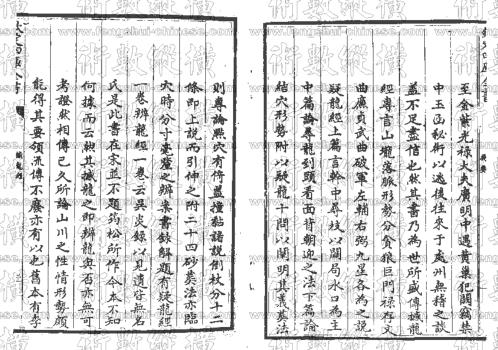 至金紫光祿大夫廣明中遇黃巢犯闕竊禁
中玉函秘術以逃後往來于處州無稽之談
蓋不足盡信也然其書乃為世所盛傳撼龍
經專言山壟落脈形勢分貪狼巨門祿存文
曲廉貞武曲破軍左輔右弼九星各為之說
疑龍經上篇言榦中尋枝以關局水口為主
中篇論尋龍到頭看面背朝迎之法下篇論
結穴形勢附以疑龍十問以闡明其義葬法
則專論點穴有倚蓋撞黏諸說倒杖分十二
條即上說而引伸之附二十四砂葬法亦臨
穴時分寸毫釐之辨案書錄解題有疑龍經
一卷辨龍經一卷云吳炎錄以見遺皆無名
氏是此書在宋並不題筠松所作今本不知
何據而云然其撼龍之即辨龍與否亦無可
考證然相傳已久所論山川之性情形勢頗
能得其要領流傳不廢亦有以也舊本有李